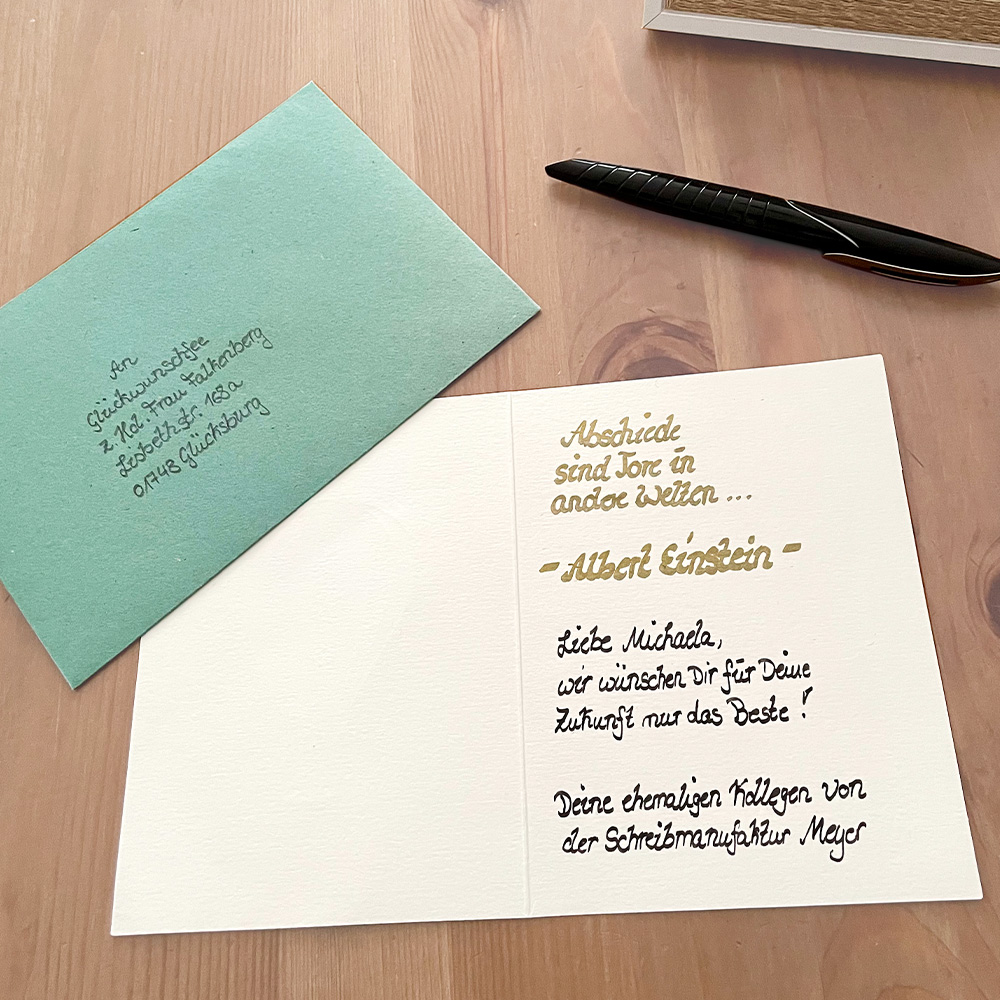 An
Glückwunschfee
z. Hd. Frau Falkenberg
Lisbethstr. 168a
01748 Glücksburg
Abschiede
sind Tore in
andere Welten ...
- Albert Einstein -
Liebe Michaela,
wir wünschen Dir für Deine
Zukunft nur das Beste!
Deine ehemaligen Kollegen von
der Schreibmanufaktur Meyer